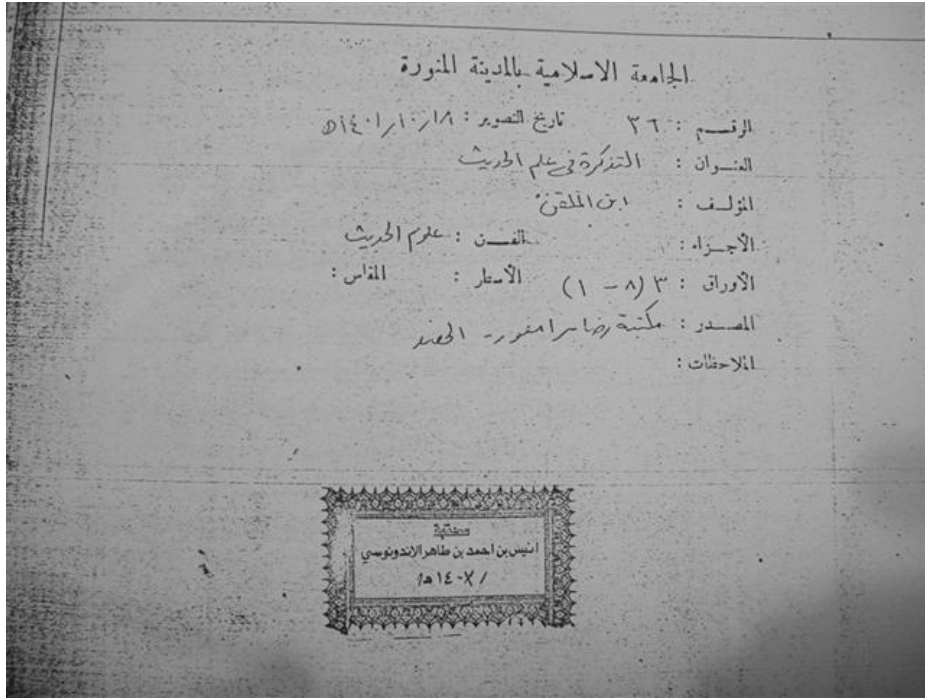 الجامعة الاسلامية بالمدينة المنورة
الرقم : ٣٦ تاريخ التصوير : ١٨/١٠/١٤٠١هـ
العنوان : التذكرة في علم الحديث
المؤلف : ابن الملقن
الأجزاء : الفن : علوم الحديث
الأوراق : ٣ (٨ - ١) الأسطار : المقاس :
المصدر : مكتبة رضا برامفور - الهند
الملاحظات :
مكتبة
انيس بن أحمد بن طاهر الاندونوسي